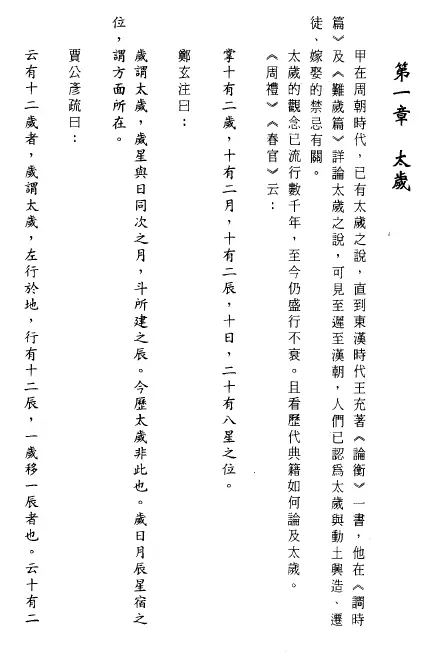 第一章　太歲
甲在周朝時代，已有太歲之說，直到東漢時代王充著《論衡》一書，他在《譋時
篇》及《難歲篇》詳論太歲之說，可見至遲至漢朝，人們已認爲太歲與動土興造、遷
徒、嫁娶的禁忌有關。
太歲的觀念已流行數千年，至今仍盛行不衰。且看歷代典籍如何論及太歲。
《周禮》《春官》云：
掌十有二歲，十有二月，十有二辰，十日，二十有八星之位。
鄭玄注曰：
歲謂太歲，歲星與日同次之月，斗所建之辰。今歷太歲非此也。歲日月辰星宿之
位，謂方面所在。
賈公彥疏曰：
云有十二歲者，歲謂太歲，左行於地，行有十二辰，一歲移一辰者也。云十有二